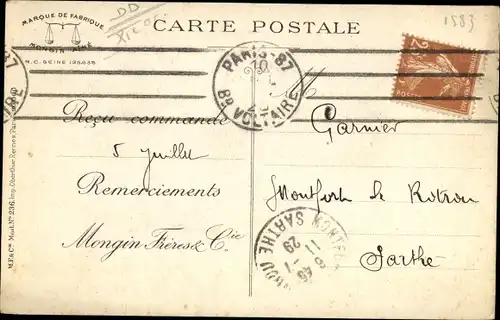 MARQUE DE FABRIQUE
MONGIN AINÉ
R.C. SEINE 125.685
DD
CARTE POSTALE
1583
PARIS-87
10
Bd VOLTAIRE
M
Reçu commande
5 juillet
Remerciements
Mongin Frères & Cie
Garnier
Montfort le Rotrou
Sarthe
SARTHE
11-7
29
M.F.& Cie Mod. No 236, Imp. Oberthur, Rennes, Paris